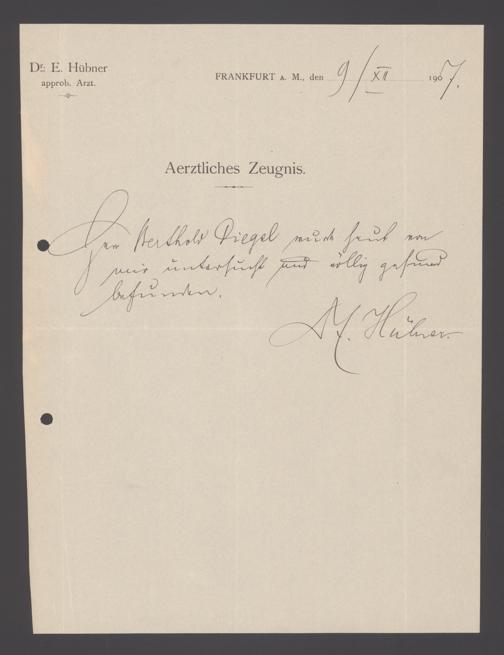 Dr. E. Hübner
approb. Arzt.
FRANKFURT a. M., den 9/XII 1907.
Aerztliches Zeugnis.
Herr Berthold Diegel wurde heut von
mir untersucht und völlig gesund
befunden.
Dr. Hübner.